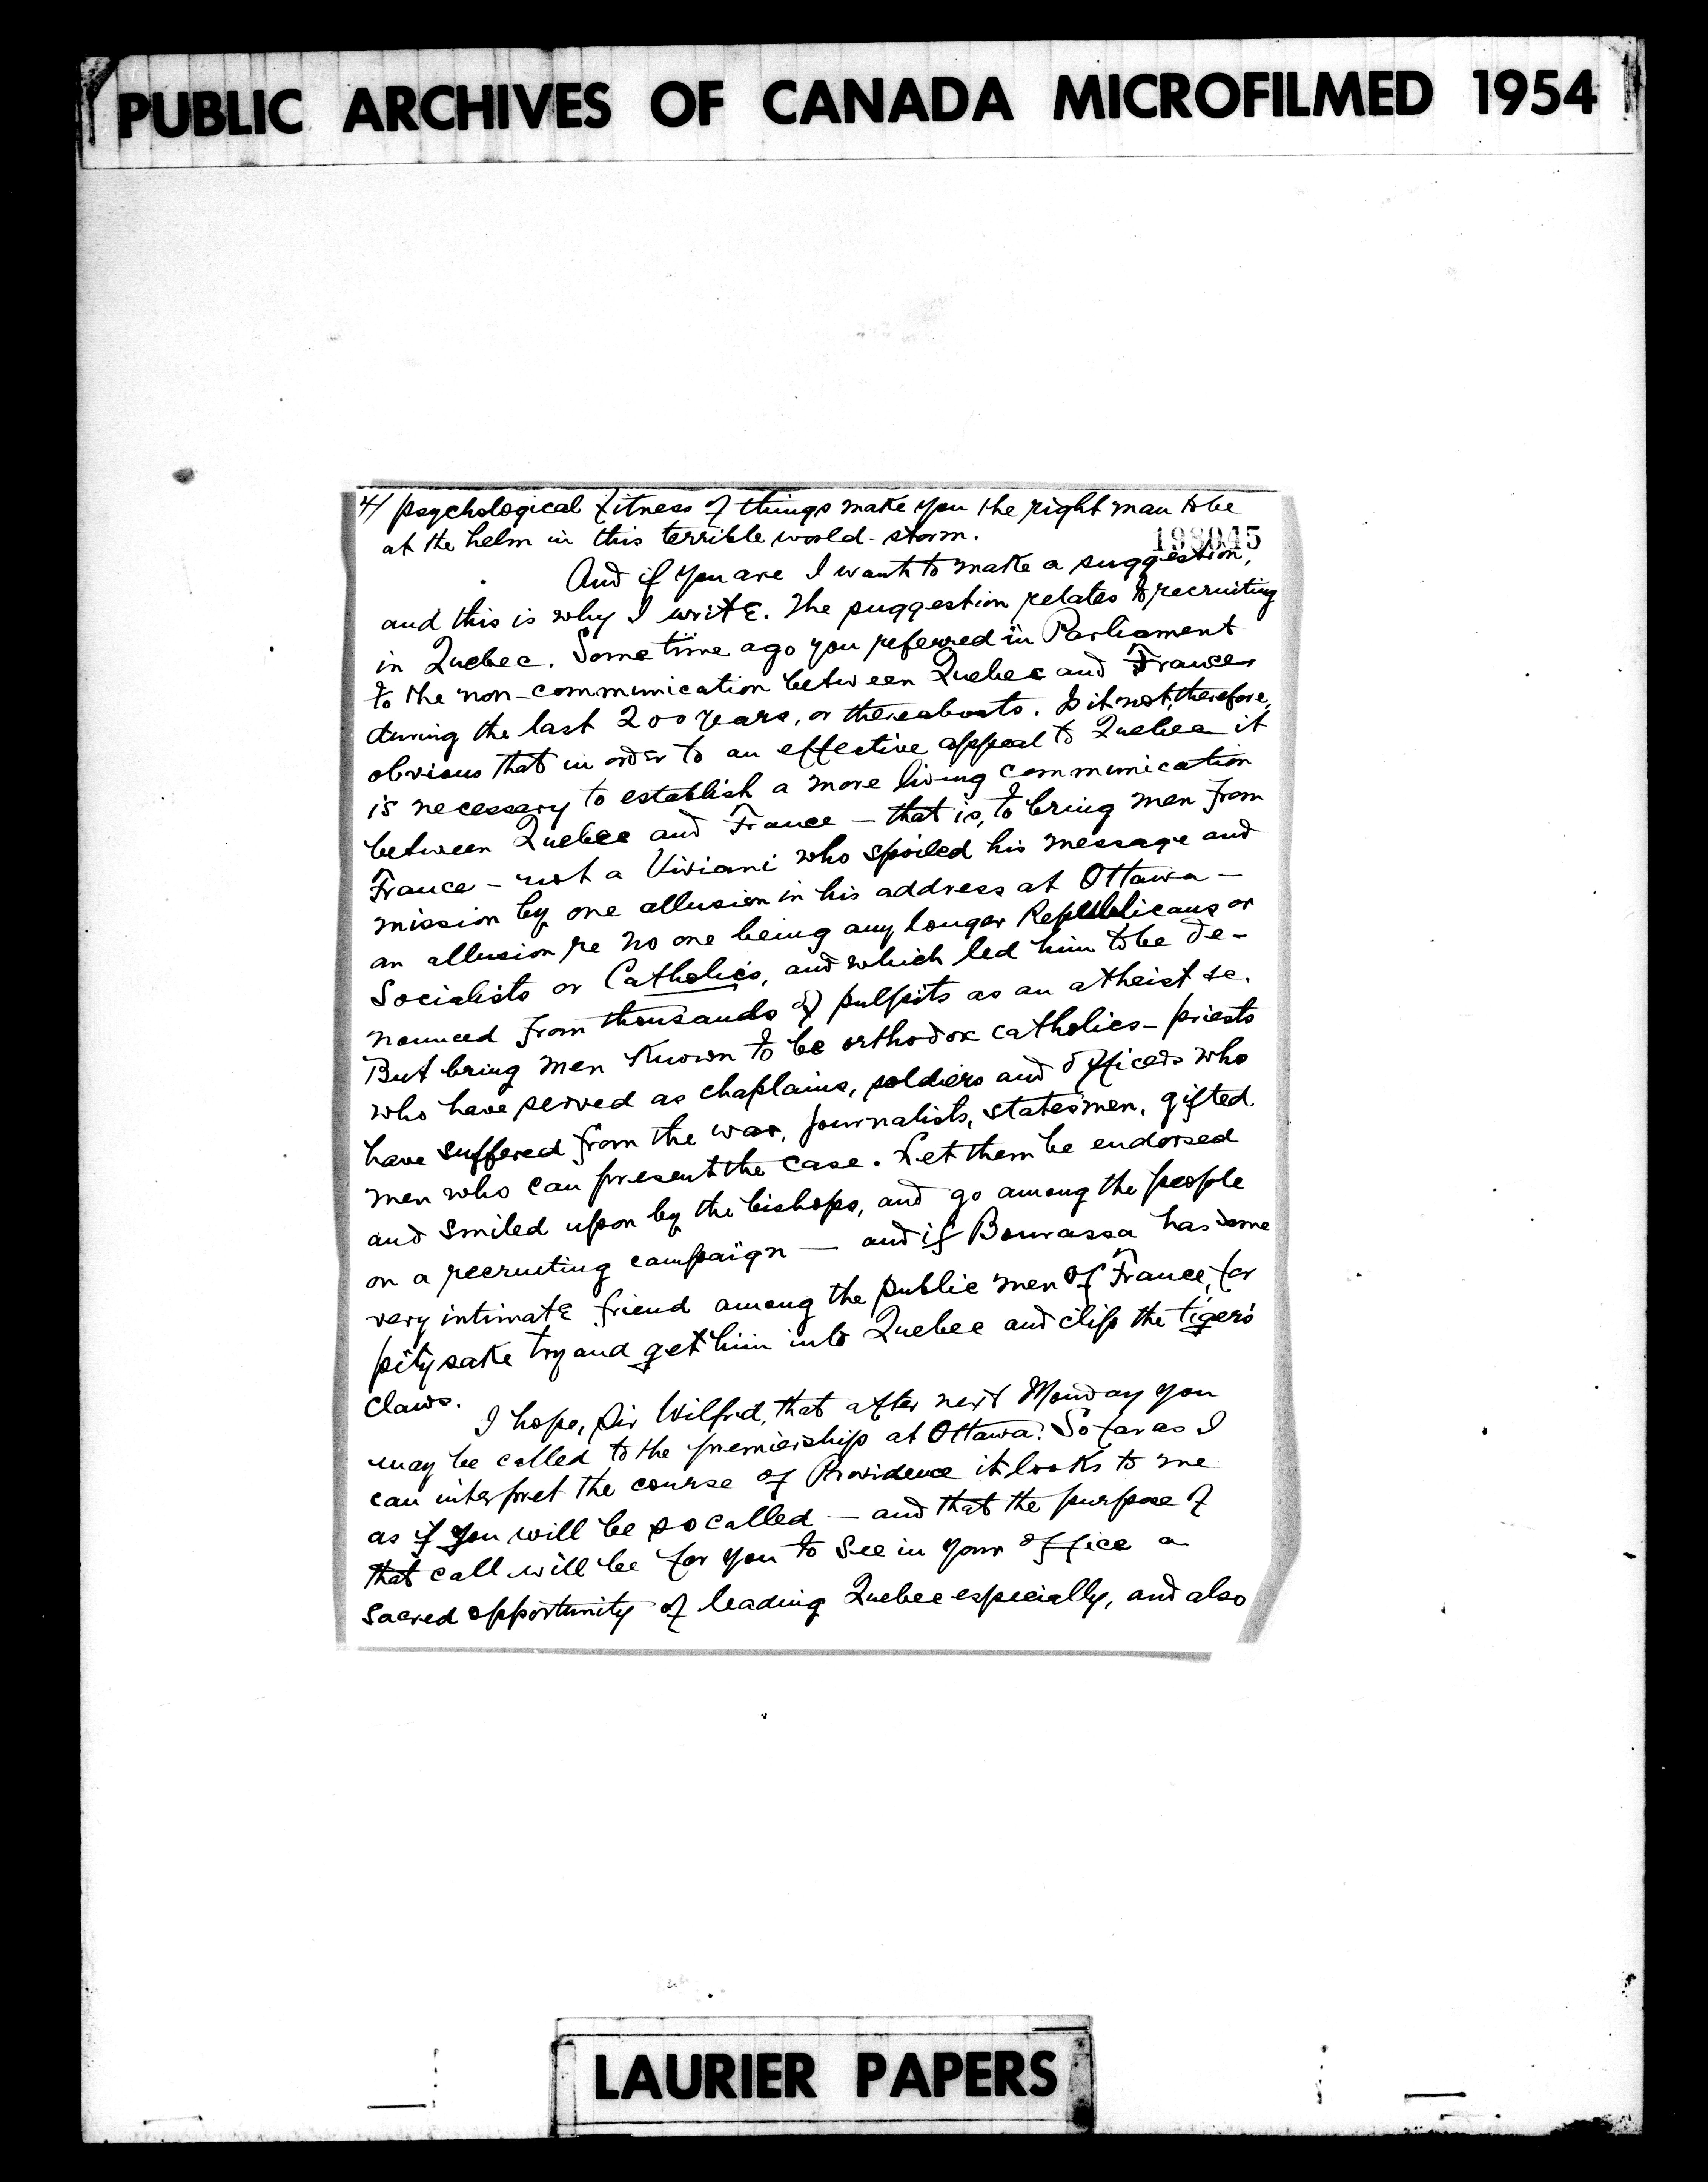 PUBLIC ARCHIVES OF CANADA MICROFILMED 1954
4/ psychological fitness of things make you the right man to be
at the helm in this terrible world-storm.
And if you are I want to make a suggestion,
and this is why I write. The suggestion relates to recruiting
in Quebec. Some time ago you referred in Parliament
to the non-communication between Quebec and France
during the last 200 years, or thereabouts. Is it not, therefore,
obvious that in order to an effective appeal to Quebec it
is necessary to establish a more living communication
between Quebec and France – that is, to bring men from
France – not a Viviani who spoiled his message and
mission by one allusion in his address at Ottawa –
an allusion re no one being any longer Republicans or
Socialists or Catholics, and which led him to be de-
nounced from thousands of pulpits as an atheist &c.
But bring men known to be orthodox catholics – priests
who have served as chaplains, soldiers and officers who
have suffered from the war, journalists, statesmen, gifted
men who can present the case. Let them be endorsed
and smiled upon by the bishops, and go among the people
on a recruiting campaign — and if Bourassa has some
very intimate friend among the public men of France, for
pity sake try and get him into Quebec and clip the tiger's
claws.
I hope, Sir Wilfrid, that after next Monday you
may be called to the premiership at Ottawa. So far as I
can interpret the course of Providence it looks to me
as if you will be so called – and that the purpose of
that call will be for you to see in your office a
sacred opportunity of leading Quebec especially, and also
LAURIER PAPERS